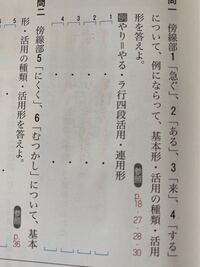 問一 傍線部1「急ぐ」、2「ある」、3「来」、4「する」
について、例にならって、基本形・活用の種類・活用
形を答えよ。
p.18・27・28・30
例 やり=やる・ラ行四段活用・連用形
1
2
3
4
問二 傍線部5「にくく」、6「むつかし」について、基本
形・活用の種類・活用形を答えよ。
p.36